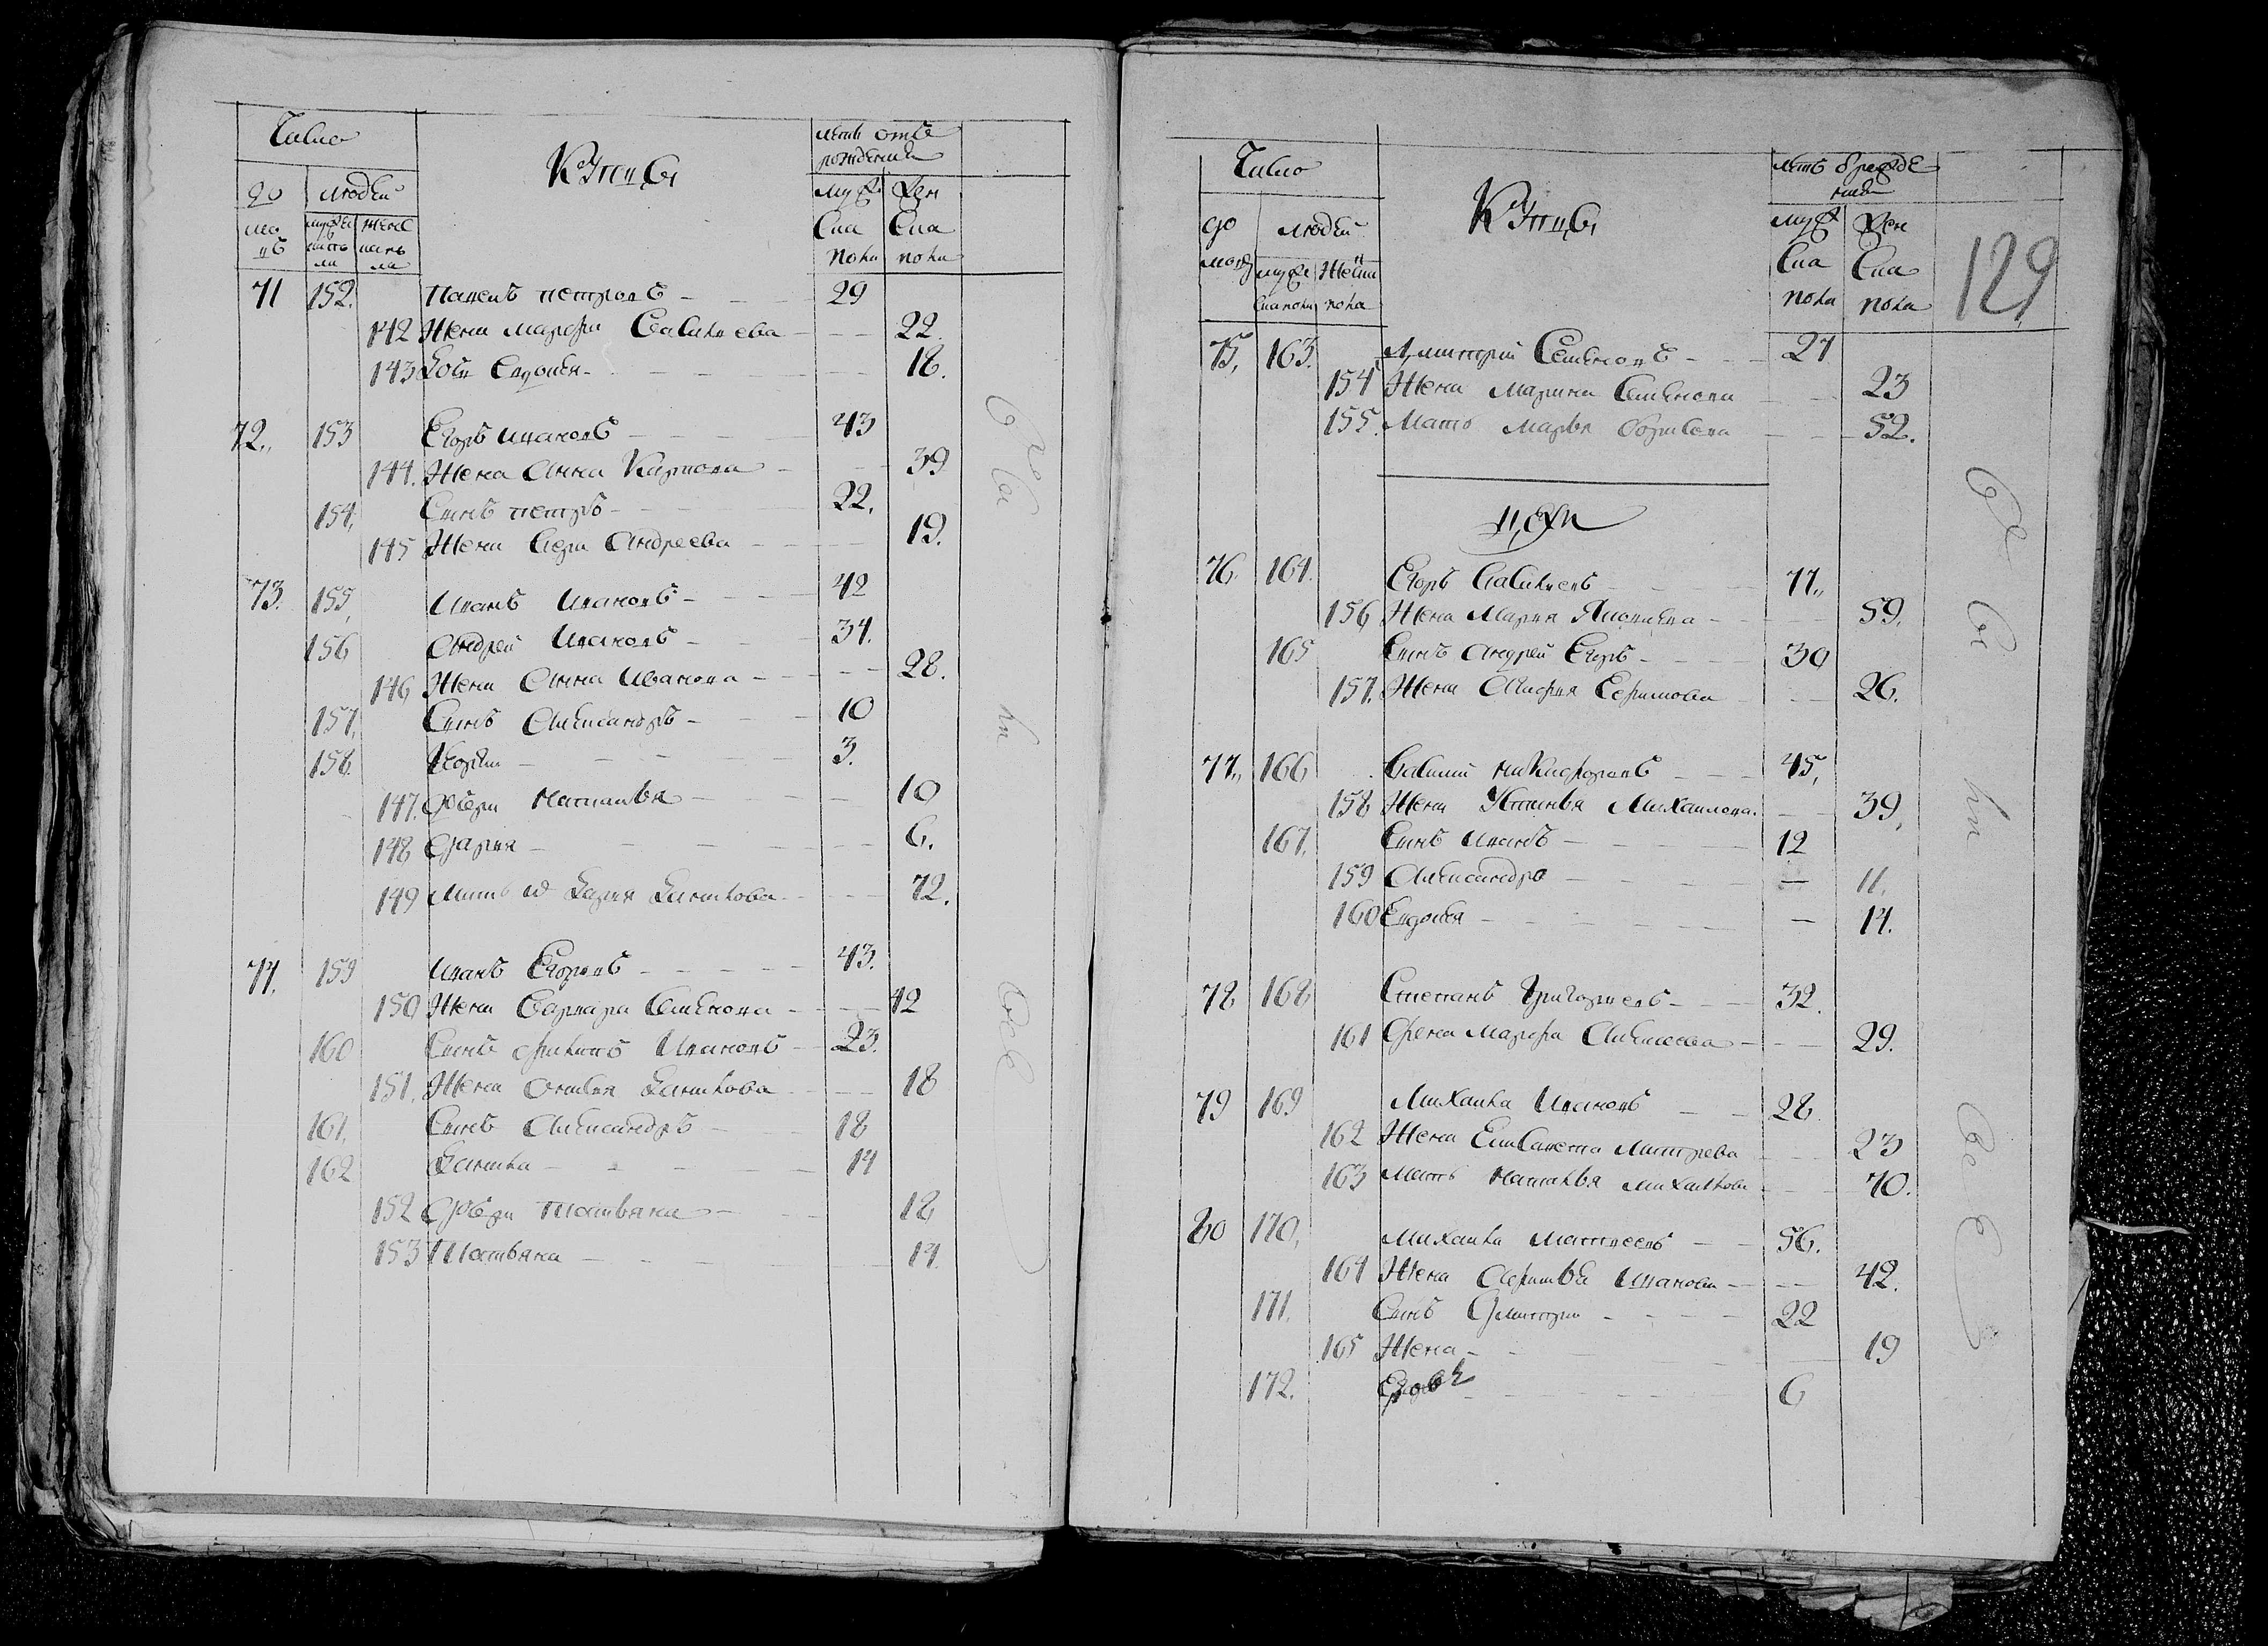 Число
Купцы
летъ отъ
рождения
до
мо
въ
людей
мужес
каго
пола
женс
каго
пола
муж
ска
пола
жен
ска
пола
71 152. Павелъ петровъ 29
142 Жена марфа Савельева 22.
143 Евдокея 18.
72. 153 Егоръ ивановъ 43
144. Жена Анна Карпова 39
154. Сынъ петръ 22.
145 Жена Андреева 19.
73. 155. Иванъ Ивановъ 42
156 Андрей Ивановъ 34.
146 Жена Анна Иванова 28.
157. Сынъ Александръ 10
158. 3.
147. Дочери Наталья 10
148 Дарья 6.
149 Мать их Дарья Данилова 72.
74. 159 Иванъ Егоровъ 43.
150 Жена Варвара Семенова 42
160 Сынъ Филипъ Ивановъ 23.
151. Жена Данилова 18
161. Сынъ Александръ 18
162 Данила 14
152 Дочери татьяна 18
153 Татьяна 14
Число
Купцы
летъ Орожде
ния
129
до
мовъ
людей
муже
ска пола
женска
пола
муж
ска
пола
жен
ска
пола
75, 163. Дмитрий Семеновъ 27
154 Жена Марина Семенова 23
155. Мать Марья Борисова 52.
Цехи
76. 164. Егоръ Савельевъ 77.
156 Жена Марья Яковлева 59.
165 Сынъ Андрей Егоръ 30
157. Жена Ефимова 26.
77. 166 Василий Никифоровъ 45,
158 Жена Устинья Михаилова. 39,
167. Сынъ Иванъ 12
159 Александра 11.
160 Евдокея 14.
78 168 Степанъ Григорьевъ 32.
161 Жена марфа Алексеева 29.
79 169 Михаила Ивановъ 28.
162 Жена Елисавета Митрева 23
163 Мать Наталья Михаилова 70.
80 170, Михаила Матвеевъ 56.
164 Жена Афимья Иванова 42.
171. Сынъ Дмитрий 22
165 Жена 19
172. 6